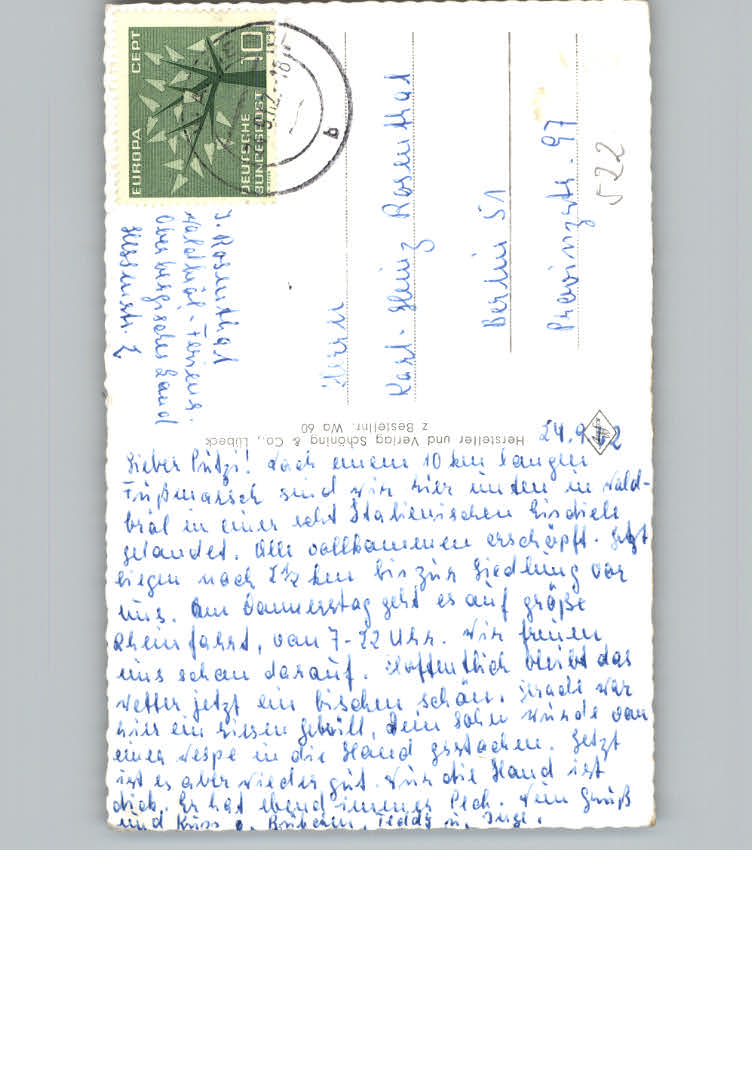 EUROPA CEPT
10
DEUTSCHE
BUNDESPOST
b
J. Rosenthal
Waldbröl - Ferienz.
Oberbergisches Land
Hessenstr. 2
Herrn
Karl-Heinz Rosenthal
Berlin 51
Provinzstr. 97
522
Hersteller und Verlag Schöning & Co., Lübeck
z Bestellnr. Wa 60
24.9.62
Lieber Putzi! Nach einem 10 km langen
Fußmarsch sind wir hier unten in Wald-
bröl in einer echt Italienischen Eisdiele
gelandet. Alle vollkommen erschöpft. Jetzt
liegen noch 2½ km bis zur Siedlung vor
uns. Am Donnerstag geht es auf große
Rheinfahrt, von 7-22 Uhr. Wir freuen
uns schon darauf. Hoffentlich bleibt das
Wetter jetzt ein bischen schön. Gerade war
hier ein riesen Gebrüll, Dein Sohn wurde von
einer Wespe in die Hand gestochen. Jetzt
ist es aber wieder gut. Nur die Hand ist
dick. Er hat ebend immer Pech. Nun Gruß
und Kuss Teddy u. Inge.